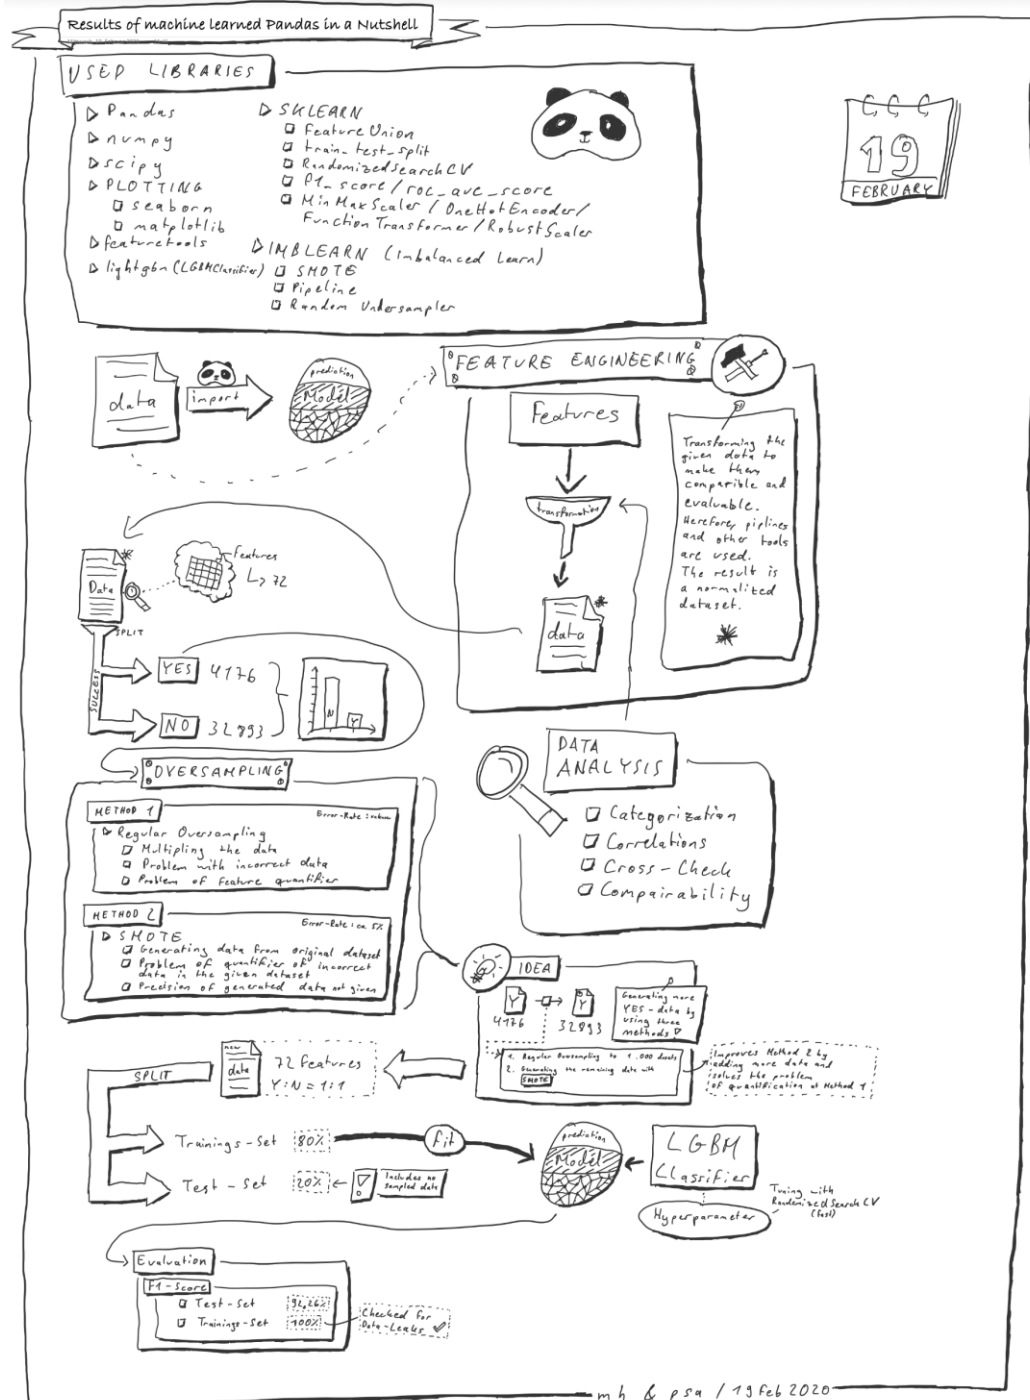 Results of machine learned Pandas in a Nutshell
USED LIBRARIES
Pandas
numpy
scipy
PLOTTING
seaborn
matplotlib
featuretools
lightgbm (LGBMClassifier)
SKLEARN
FeatureUnion
train_test_split
RandomizedSearchCV
F1_score / roc_auc_score
MinMaxScaler / OneHotEncoder /
Function Transformer / RobustScaler
IMBLEARN (Imbalanced Learn)
SMOTE
Pipeline
Random Undersampler
19
FEBRUARY
data
import
prediction
Model
FEATURE ENGINEERING
Features
transformation
data
Transforming the
given data to
make them
comparible and
evaluable.
Herefore, piplines
and other tools
are used.
The result is
a normalized
dataset.
Data
Features
72
SPLIT
SUCCESS
YES 4176
NO 32893
N
Y
DATA
ANALYSIS
Categorization
Correlations
Cross-Check
Compairability
OVERSAMPLING
METHOD 1
Error-Rate:
Regular Oversampling
Multipling the data
Problem with incorrect data
Problem of feature quantifier
METHOD 2
Error-Rate: ca. 5%
SMOTE
Generating data from original dataset
Problem of quantifier of incorrect
data in the given dataset
Precision of generated data not given
IDEA
Y
Y
4176
32893
Generating more
YES-data by
using three
methods
1. Regular Oversampling to 1.000
2. Generating the remaining data with
SMOTE
Improves Method 2 by
adding more data and
solves the problem
of quantification at Method 1
new
data
72 Features
Y:N = 1:1
SPLIT
Trainings-Set 80%
fit
Test-Set 20%
Includes no
sampled data
prediction
Model
LGBM
Classifier
Hyperparameter
Tuning with
RandomizedSearchCV
(fast)
Evaluation
F1-Score
Test-Set 92,26%
Trainings-Set 100%
Checked for
Data-Leaks
mh & psa / 19 Feb 2020